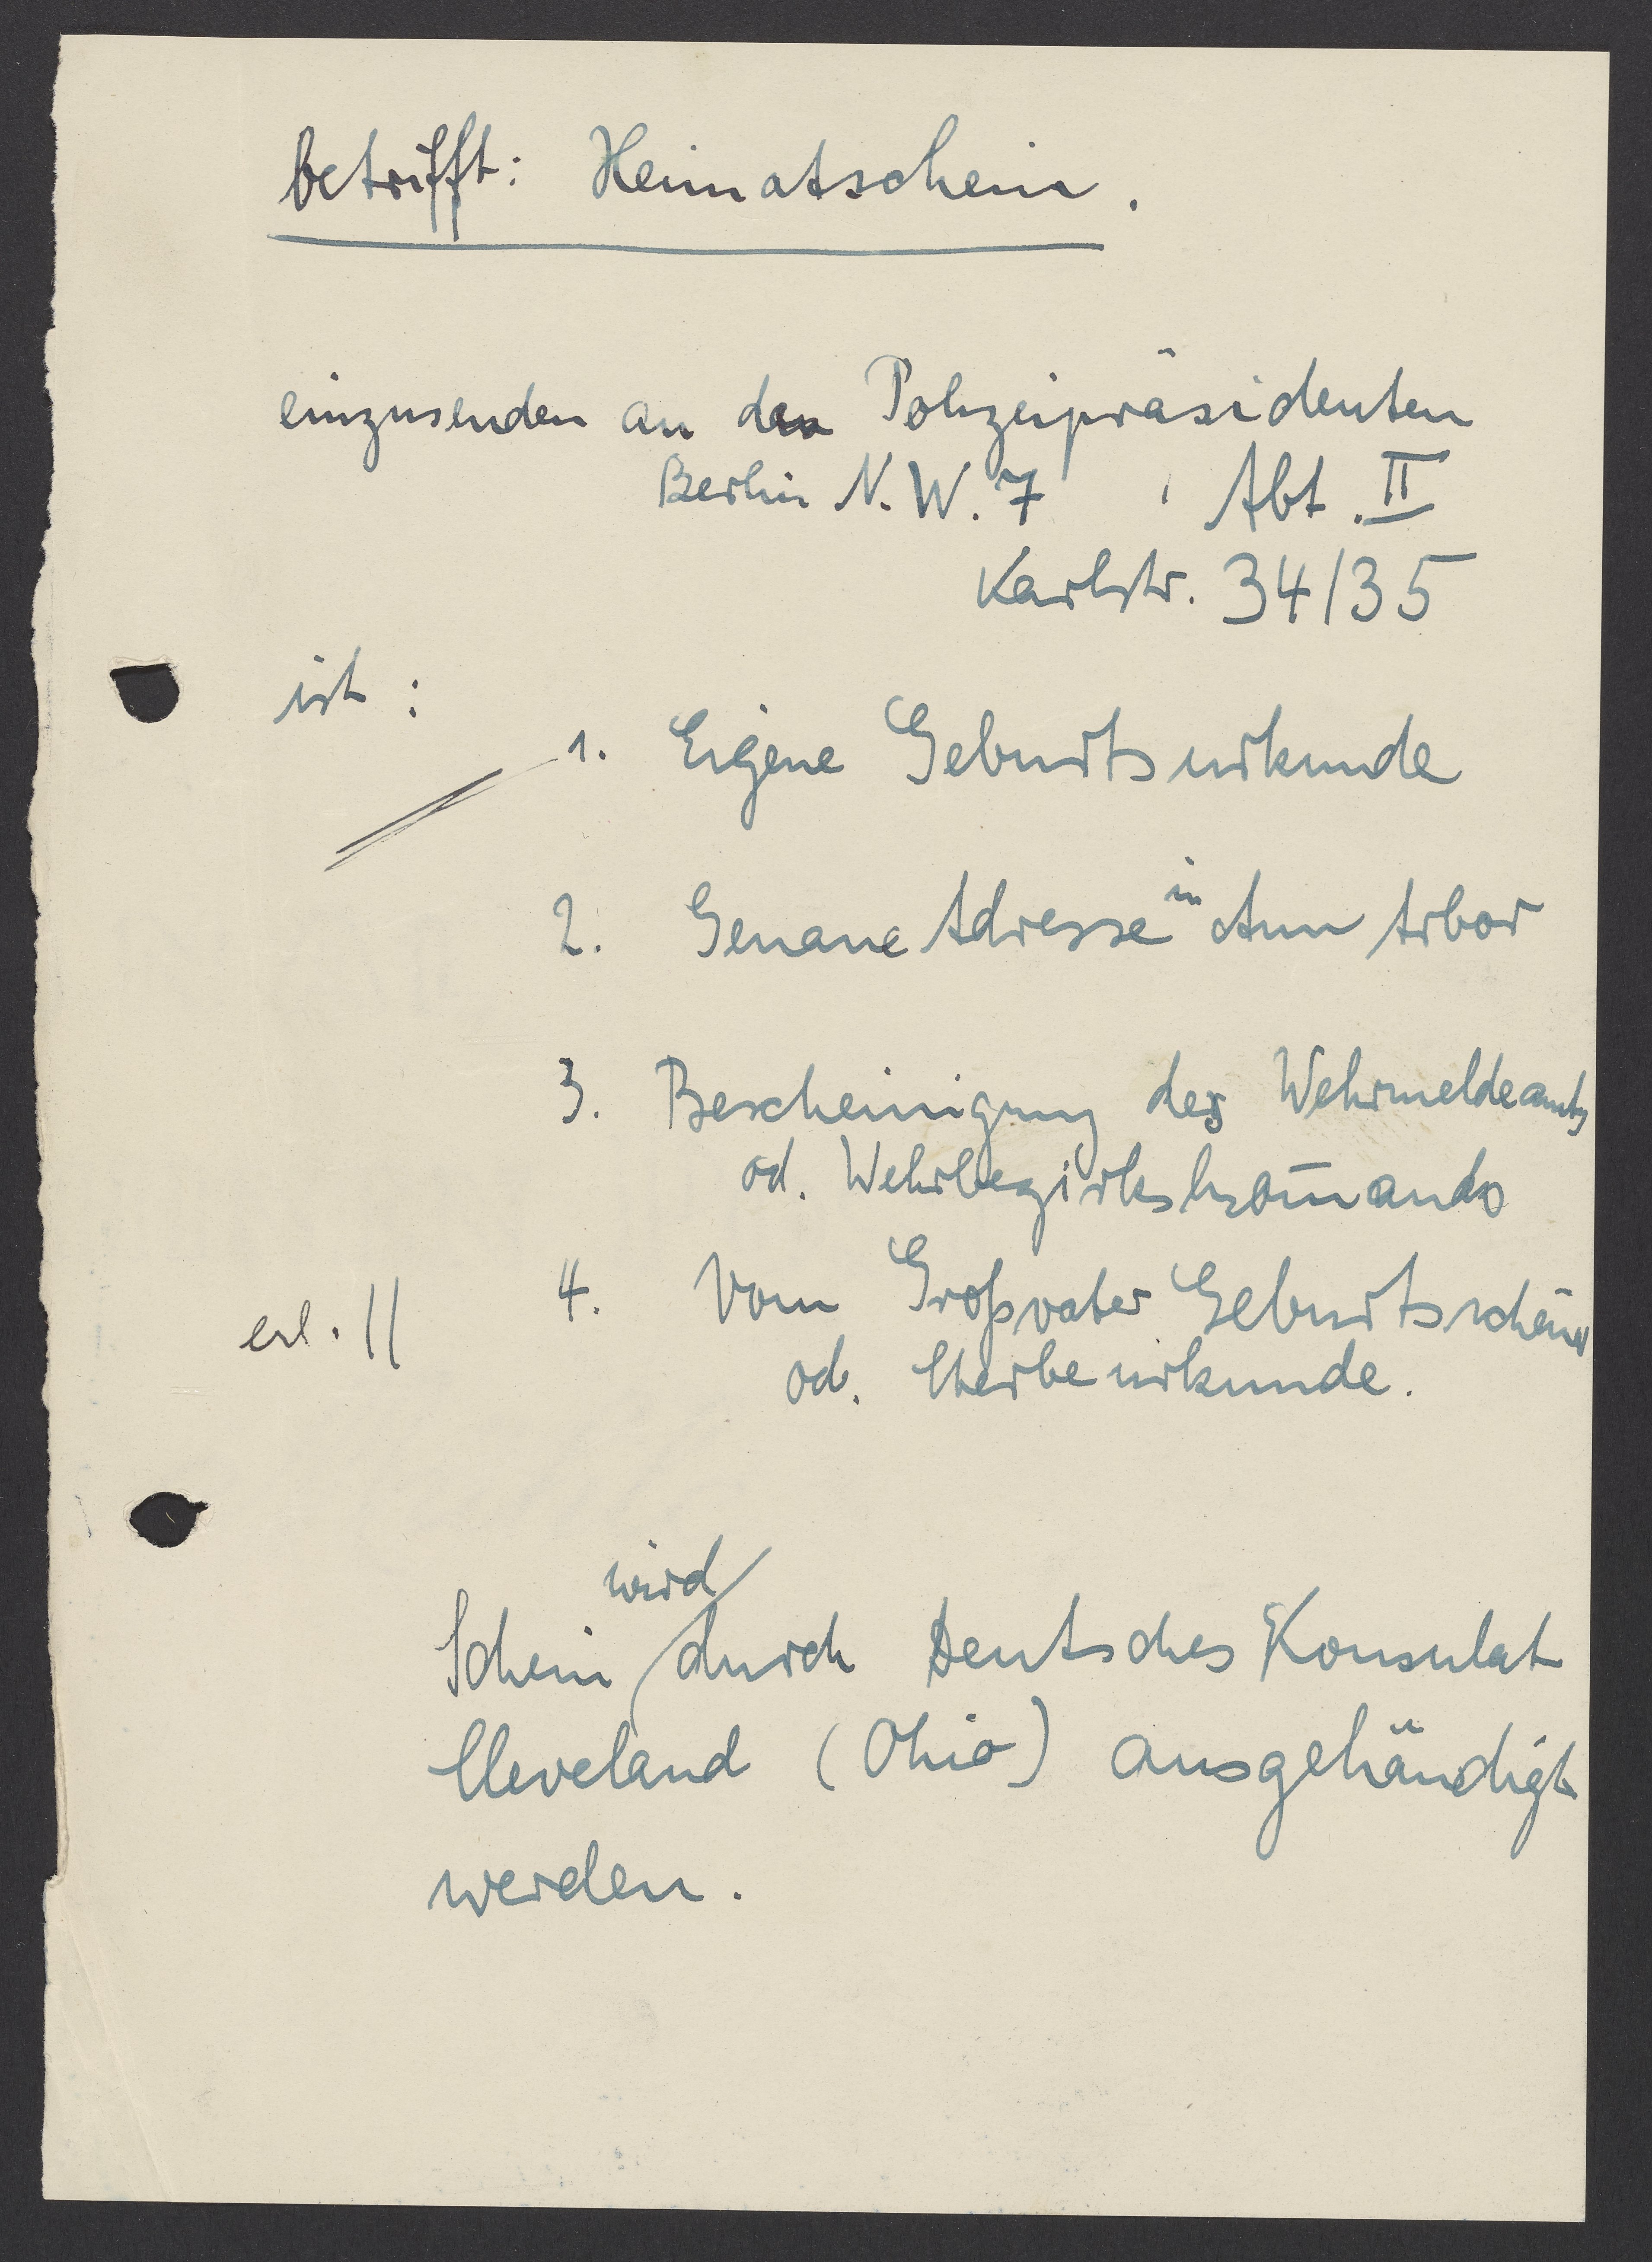 betrifft: Heimatschein.
einzusenden an den Polizeipräsidenten
Berlin N.W. 7, Abt. II
Karlstr. 34/35
ist:
1. Eigene Geburtsurkunde
2. Genaue Adresse in Ann Arbor
3. Bescheinigung des Wehrmeldeamts
od. Wehrbezirkskom̅ando
erl. || 4. Vom Großvater Geburtsschein
od. Sterbeurkunde.
wird
Schein durch Deutsches Konsulat
Cleveland (Ohio) ausgehändigt
werden.